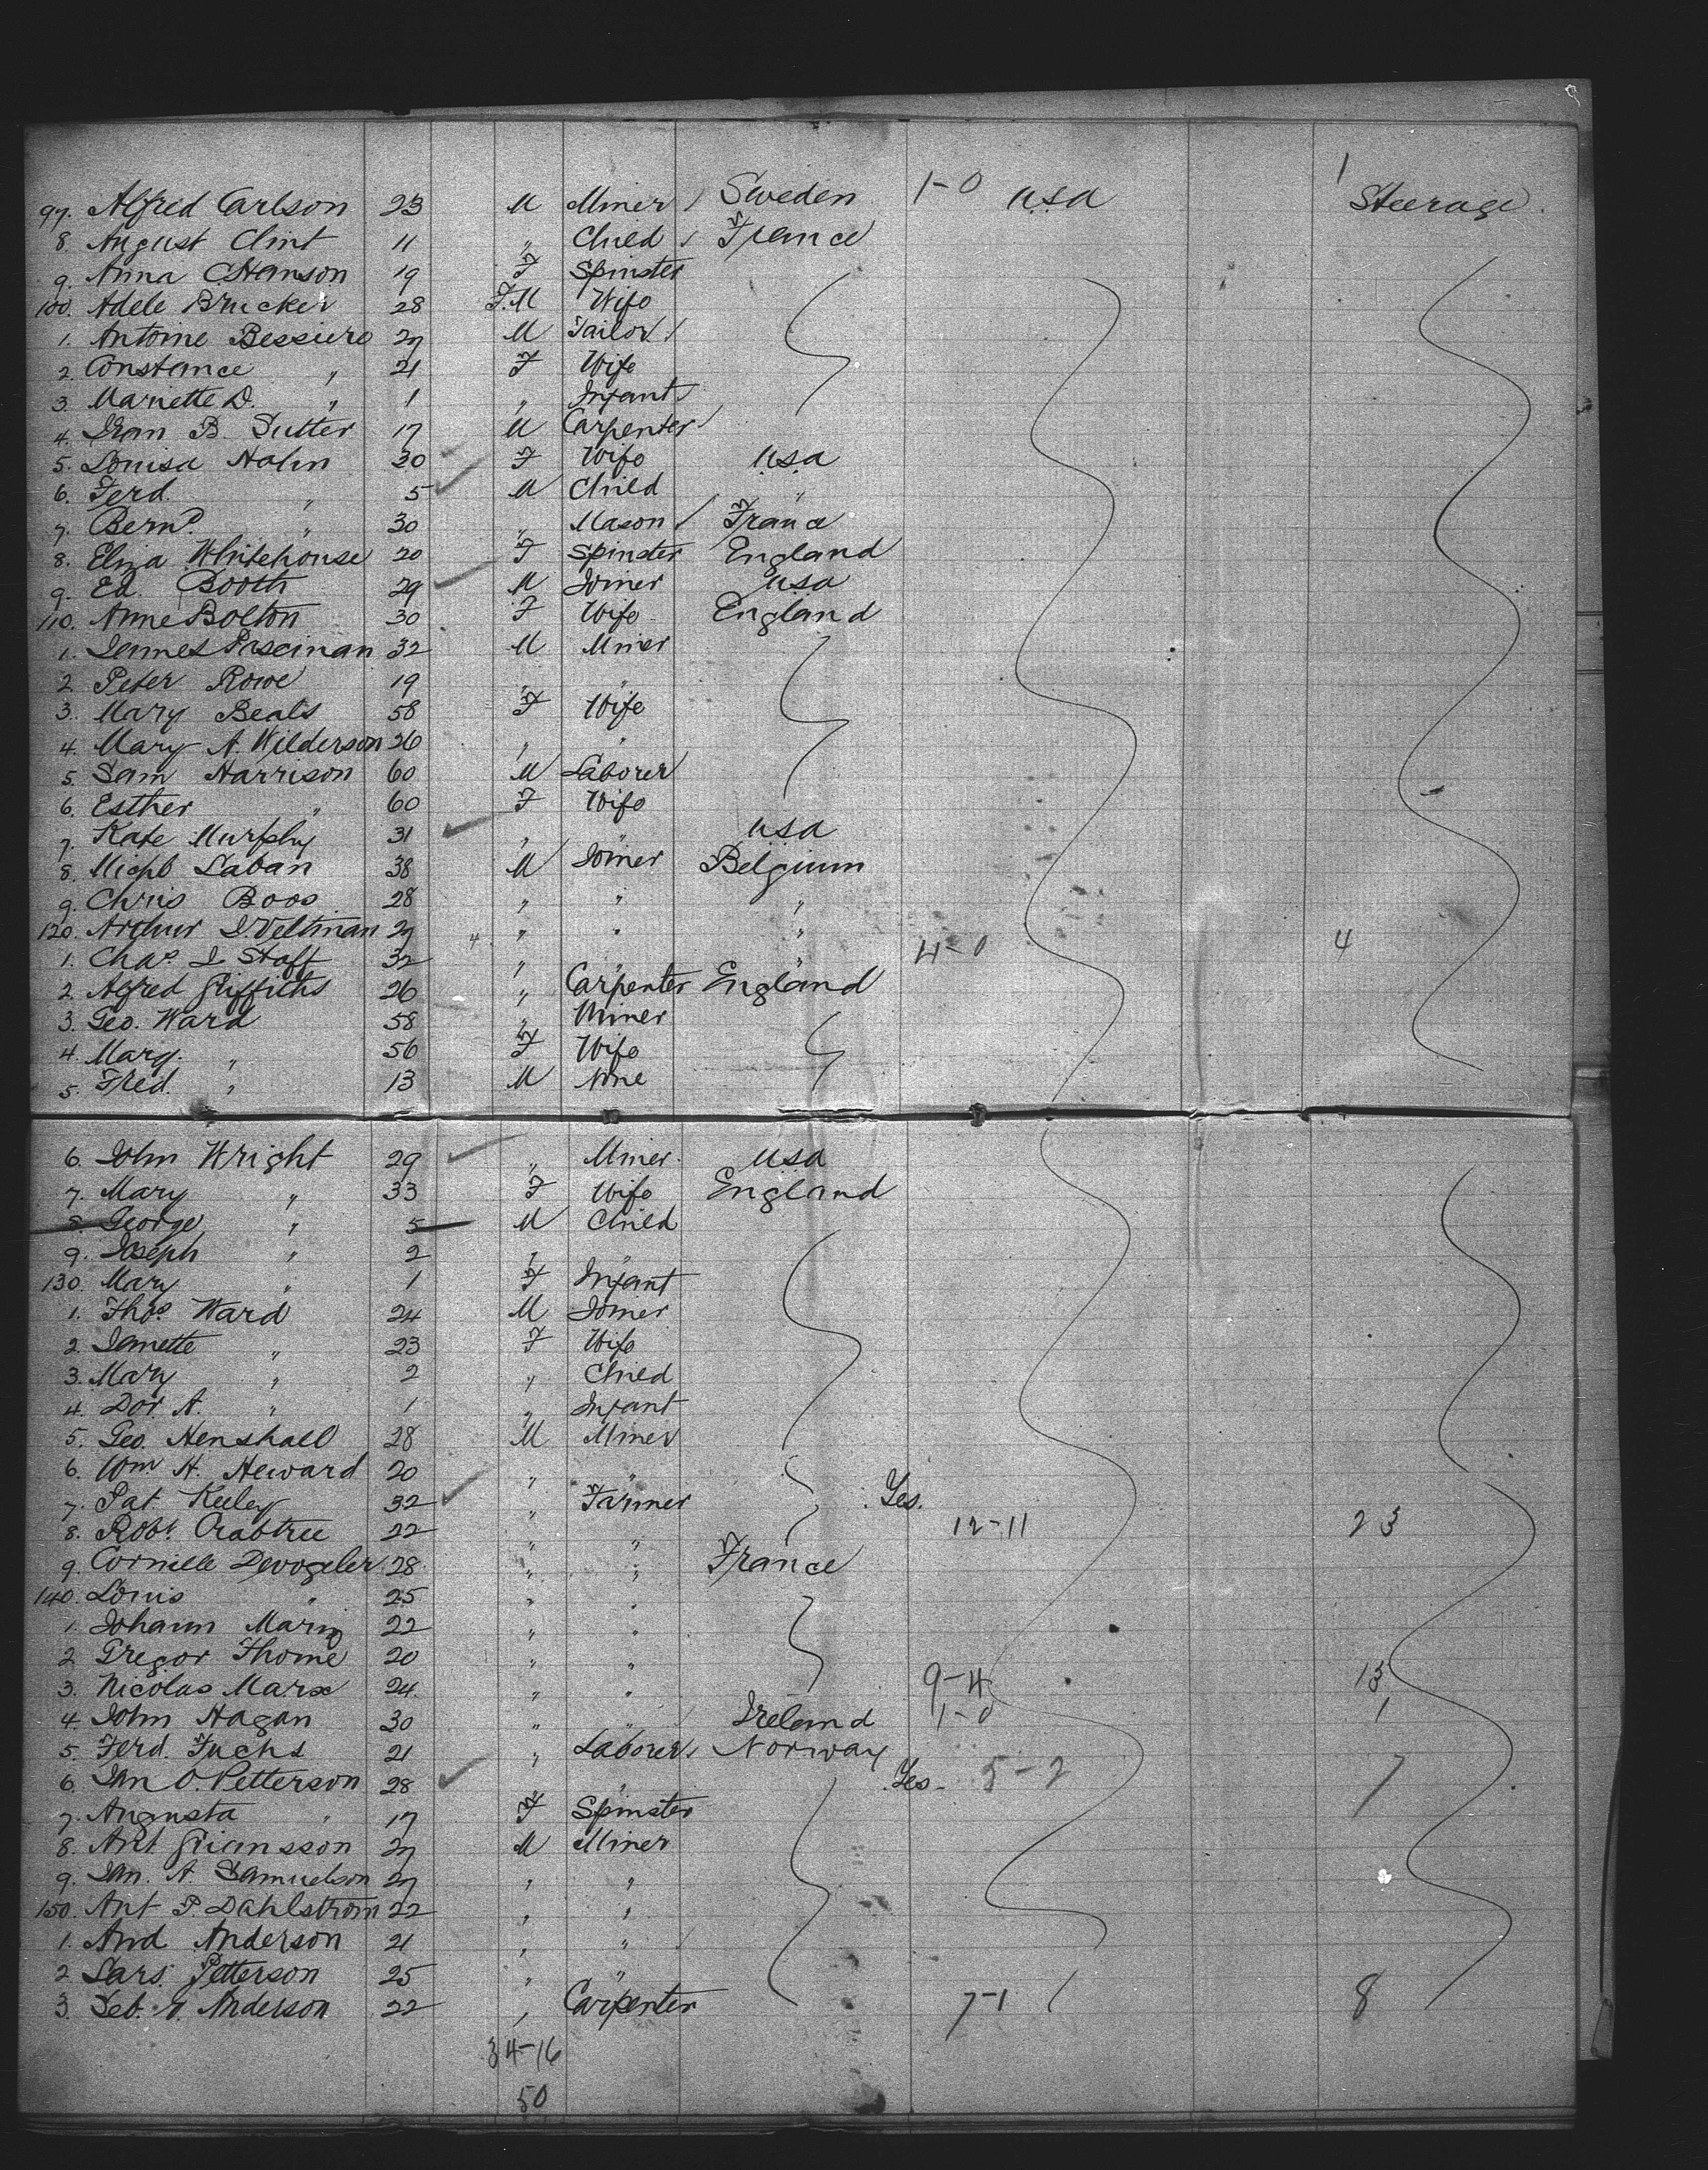 1
97. Alfred Carlson 23 M Miner / Sweden 1-0 USA Steerage
8. August Clint 11 " Child / France
9. Anna C. Hanson 19 F Spinster
100. Adele Brucker 28 F.M Wife
1. Antoine Bessiere 27 M Tailor /
2. Constance " 21 F Wife
3. Mariette D. " 1 " Infant
4. B. Sutter 17 M Carpenter /
5. Louisa Hahn 30 F Wife USA
6. Ferd. " 5 M Child "
7. Bernd. " 30 " Mason / France
8. Eliza Whitehouse 20 F Spinster England
9. Ed. Booth 29 M Joiner USA
110. Anne Bolton 30 F Wife England
1. James 32 M Miner
2. Peter Rowe 19 " "
3. Mary Beals 58 F Wife
4. Mary A. Wilderson 26 " "
5. Sam Harrison 60 M Laborer
6. Esther " 60 F Wife
7. Kate Murphy 31 " " USA
8. Michl Laban 38 M Joiner Belgium
9. Chris Boos 28 " " "
120. Arthur J. Veltman 27 4 " " "
1. Chas. J Staff 32 " " " 4-0 4
2. Alfred Griffiths 26 " Carpenter England
3. Geo. Ward 58 " Miner
4. Marg. " 56 F Wife
5. Fred. " 13 M None
6. John Wright 29 " Miner USA
7. Mary " 33 F Wife England
8. George " 5 M Child
9. Joseph " 2 " "
130. Mary " 1 F Infant
1. Thos. Ward 24 M Joiner
2. Janette " 23 F Wife
3. Mary " 2 " Child
4. Dor. A. " 1 " Infant
5. Geo. Henshall 28 M Miner
6. Wm. H. Heward 20 " "
7. Pat. Keeley 32 " Farmer Yes.
8. Robt. Crabtree 22 " " 12-11 23
9. Cornelle Devogeler 28 " " France
140. Louis " 25 " "
1. Johann Marin 22 " "
2. Gregor Thome 20 " "
3. Nicolas Marx 24 " " 9-4 13
4. John Hagan 30 " " Ireland 1-0 1
5. Ferd. Fuchs 21 " Laborer / Norway
6. Jan O. Petterson 28 " " Yes. 5-2 7
7. Augusta " 17 F Spinster
8. Ant. 27 M Miner
9. Jan. A. Samuelson 27 " "
150. Ant P. Dahlstrom 22 " "
1. And Anderson 21 " "
2. Lars. Petterson 25 " "
3. Seb. A. Anderson 22 " Carpenter 7-1 8
34-16
50